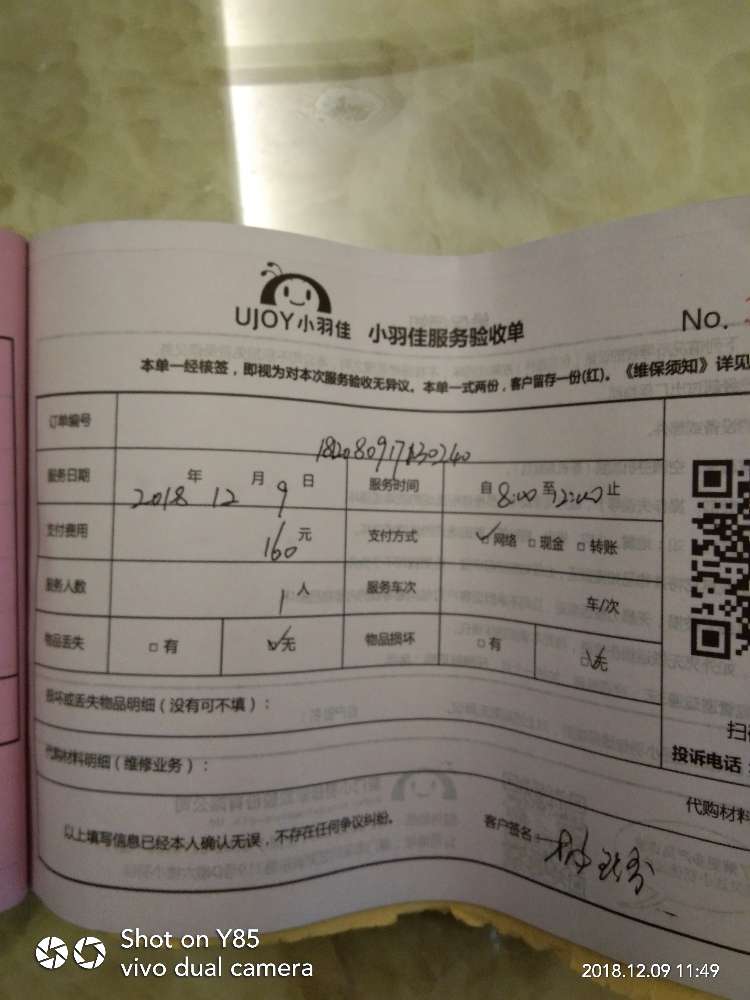 UJOY小羽佳 小羽佳服务验收单
No.
本单一经核签，即视为对本次服务验收无异议。本单一式两份，客户留存一份(红)。《维保须知》详见
订单编号
服务日期 2018 年 12 月 9 日 服务时间 自 8:00 至 12:00 止
支付费用 160 元 支付方式 ☑网络 □现金 □转账
服务人数 1 人 服务车次 车/次
物品丢失 □有 ☑无 物品损坏 □有 ☑无
损坏或丢失物品明细（没有可不填）：
扫
投诉电话：
代购材料明细（维修业务）：
代购材料
以上填写信息已经本人确认无误，不存在任何争议纠纷。 客户签名：
Shot on Y85
vivo dual camera
2018.12.09 11:49